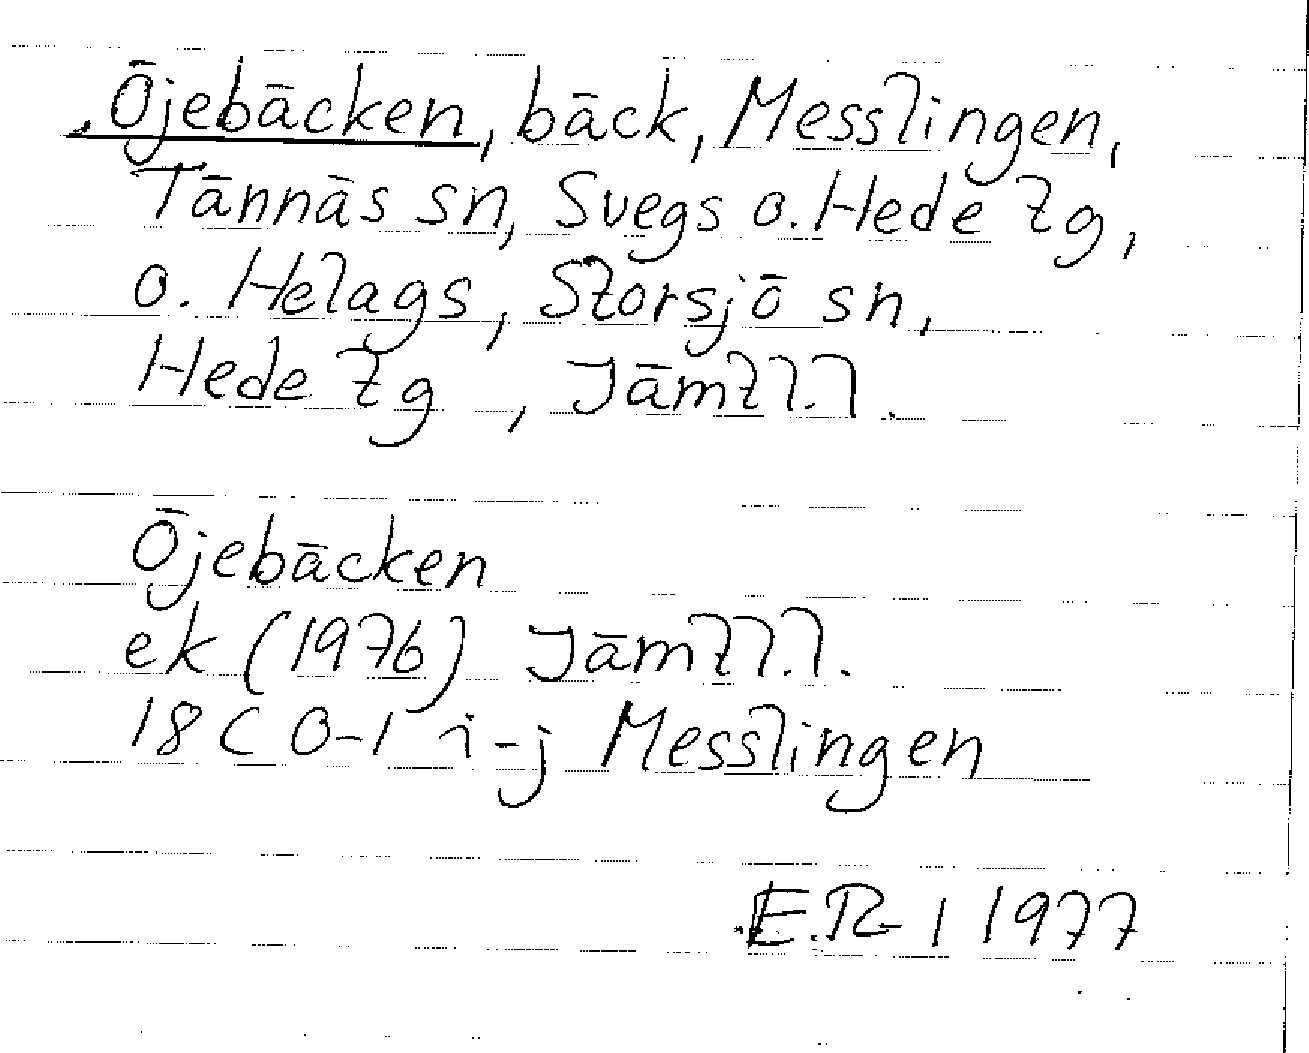 Öjebäcken, bäck, Messlingen,
Tännäs sn, Svegs o. Hede tg,
o. Helags, Storsjö sn,
Hede tg, Jämtl.l.
Öjebäcken
ek (1976) Jämtl.l.
18 C 0-1 i-j Messlingen
E.R. 1 1977